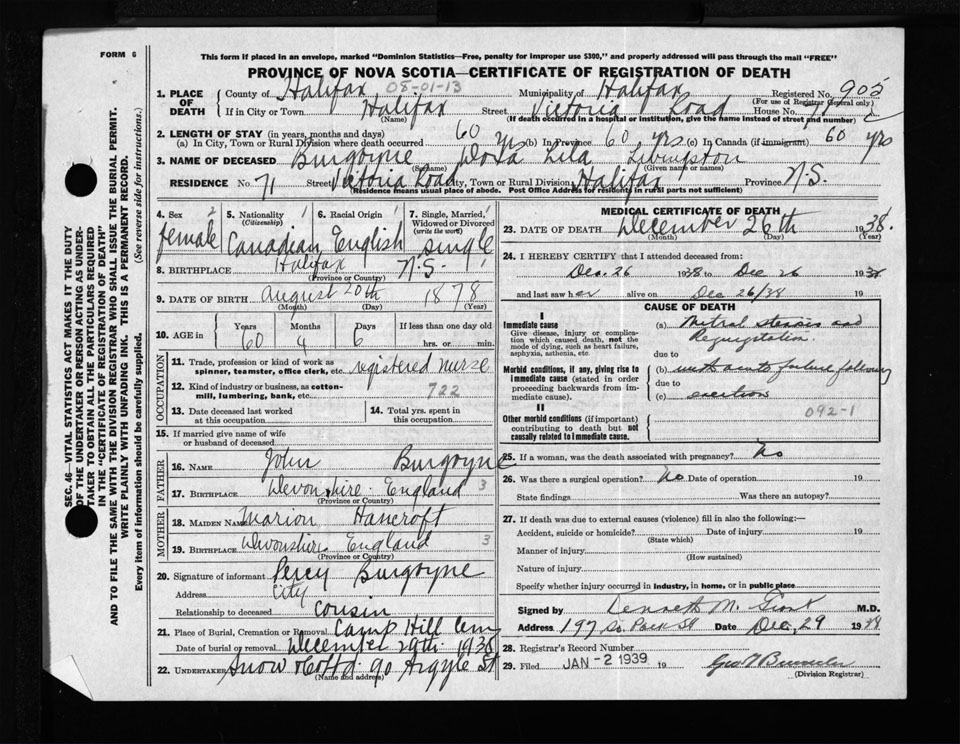 FORM 6
This form if placed in an envelope, marked "Dominion Statistics—Free, penalty for improper use $300," and properly addressed will pass through the mail "FREE"
PROVINCE OF NOVA SCOTIA—CERTIFICATE OF REGISTRATION OF DEATH
SEC. 46—VITAL STATISTICS ACT MAKES IT THE DUTY
OF THE UNDERTAKER OR PERSON ACTING AS UNDER-
TAKER TO OBTAIN ALL THE PARTICULARS REQUIRED
IN THE "CERTIFICATE OF REGISTRATION OF DEATH"
AND TO FILE THE SAME WITH THE DIVISION REGISTRAR WHO SHALL ISSUE THE BURIAL PERMIT.
WRITE PLAINLY WITH UNFADING INK. THIS IS A PERMANENT RECORD.
Every item of information should be carefully supplied. (See reverse side for instructions.)
1. PLACE OF DEATH
County of Halifax 08-01-13 Municipality of Halifax Registered No. 905
(For use of Registrar General only)
If in City or Town Halifax Street Victoria Road House No. 71
(Name) (If death occurred in a hospital or institution, give the name instead of street and number)
2. LENGTH OF STAY (in years, months and days)
(a) In City, Town or Rural Division where death occurred 60 yrs (b) In Province 60 yrs (c) In Canada (if immigrant) 60 yrs
3. NAME OF DECEASED Burgoyne Lila Livingston
(Surname) (Given name or names)
RESIDENCE No. 71 Street Victoria Road City, Town or Rural Division Halifax Province N.S.
(Residence means usual place of abode. Post Office Address for residents in rural parts not sufficient)
4. Sex 2 female
5. Nationality 1 Canadian
6. Racial Origin 1 English
7. Single, Married, Widowed or Divorced (write the word) 1 single
8. BIRTHPLACE Halifax N.S. 1
(Province or Country)
9. DATE OF BIRTH August 20th 1878
(Month) (Day) (Year)
10. AGE in Years 60 Months 4 Days 6 If less than one day old hrs. or min.
OCCUPATION
11. Trade, profession or kind of work as spinner, teamster, office clerk, etc. registered nurse
12. Kind of industry or business, as cotton-mill, lumbering, bank, etc. 722
13. Date deceased last worked at this occupation
14. Total yrs. spent in this occupation
15. If married give name of wife or husband of deceased
FATHER
16. NAME John Burgoyne
17. BIRTHPLACE Devonshire England 3
(Province or Country)
MOTHER
18. MAIDEN NAME Marion Hancroft
19. BIRTHPLACE Devonshire England 3
(Province or Country)
20. Signature of informant Percy Burgoyne
Address City
Relationship to deceased Cousin
21. Place of Burial, Cremation or Removal Camp Hill Cemy
Date of burial or removal December 29th 1938
22. UNDERTAKER Snow & Co Ltd 90 Argyle St
(Name and address)
MEDICAL CERTIFICATE OF DEATH
23. DATE OF DEATH December 26th 1938
(Month) (Day) (Year)
24. I HEREBY CERTIFY that I attended deceased from:
Dec. 26 1938 to Dec 26 1938
and last saw her alive on Dec 26/38 19
CAUSE OF DEATH
I
Immediate cause
Give disease, injury or complication which caused death, not the mode of dying, such as heart failure, asphyxia, asthenia, etc
(a) Mitral stenosis and Regurgitation.
due to
Morbid conditions, if any, giving rise to immediate cause (stated in order proceeding backwards from immediate cause).
(b) with acute failure following
due to
(c) exertion
092-1
II
Other morbid conditions (if important) contributing to death but not causally related to immediate cause.
25. If a woman, was the death associated with pregnancy? No
26. Was there a surgical operation? No Date of operation 19
State findings Was there an autopsy?
27. If death was due to external causes (violence) fill in also the following:—
Accident, suicide or homicide? Date of injury 19
(State which)
Manner of injury
(How sustained)
Nature of injury
Specify whether injury occurred in industry, in home, or in public place
Signed by Kenneth M. Grant M.D.
Address 197 So. Park St Date Dec, 29 1938
28. Registrar's Record Number
29. Filed JAN - 2 1939 19
(Division Registrar)